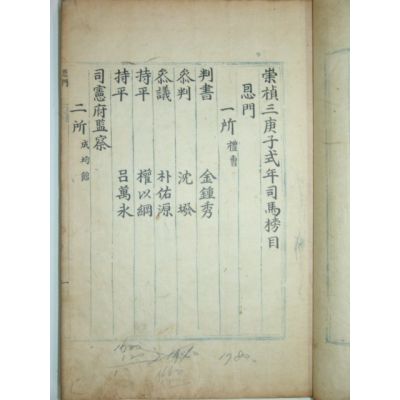 崇禎三庚子式年司馬榜目
恩門
一所 禮曹
判書 金鍾秀
叅判 沈
叅議 朴佑源
持平 權以綱
持平 呂萬永
司憲府監察
二所 成均館
恩門
1780